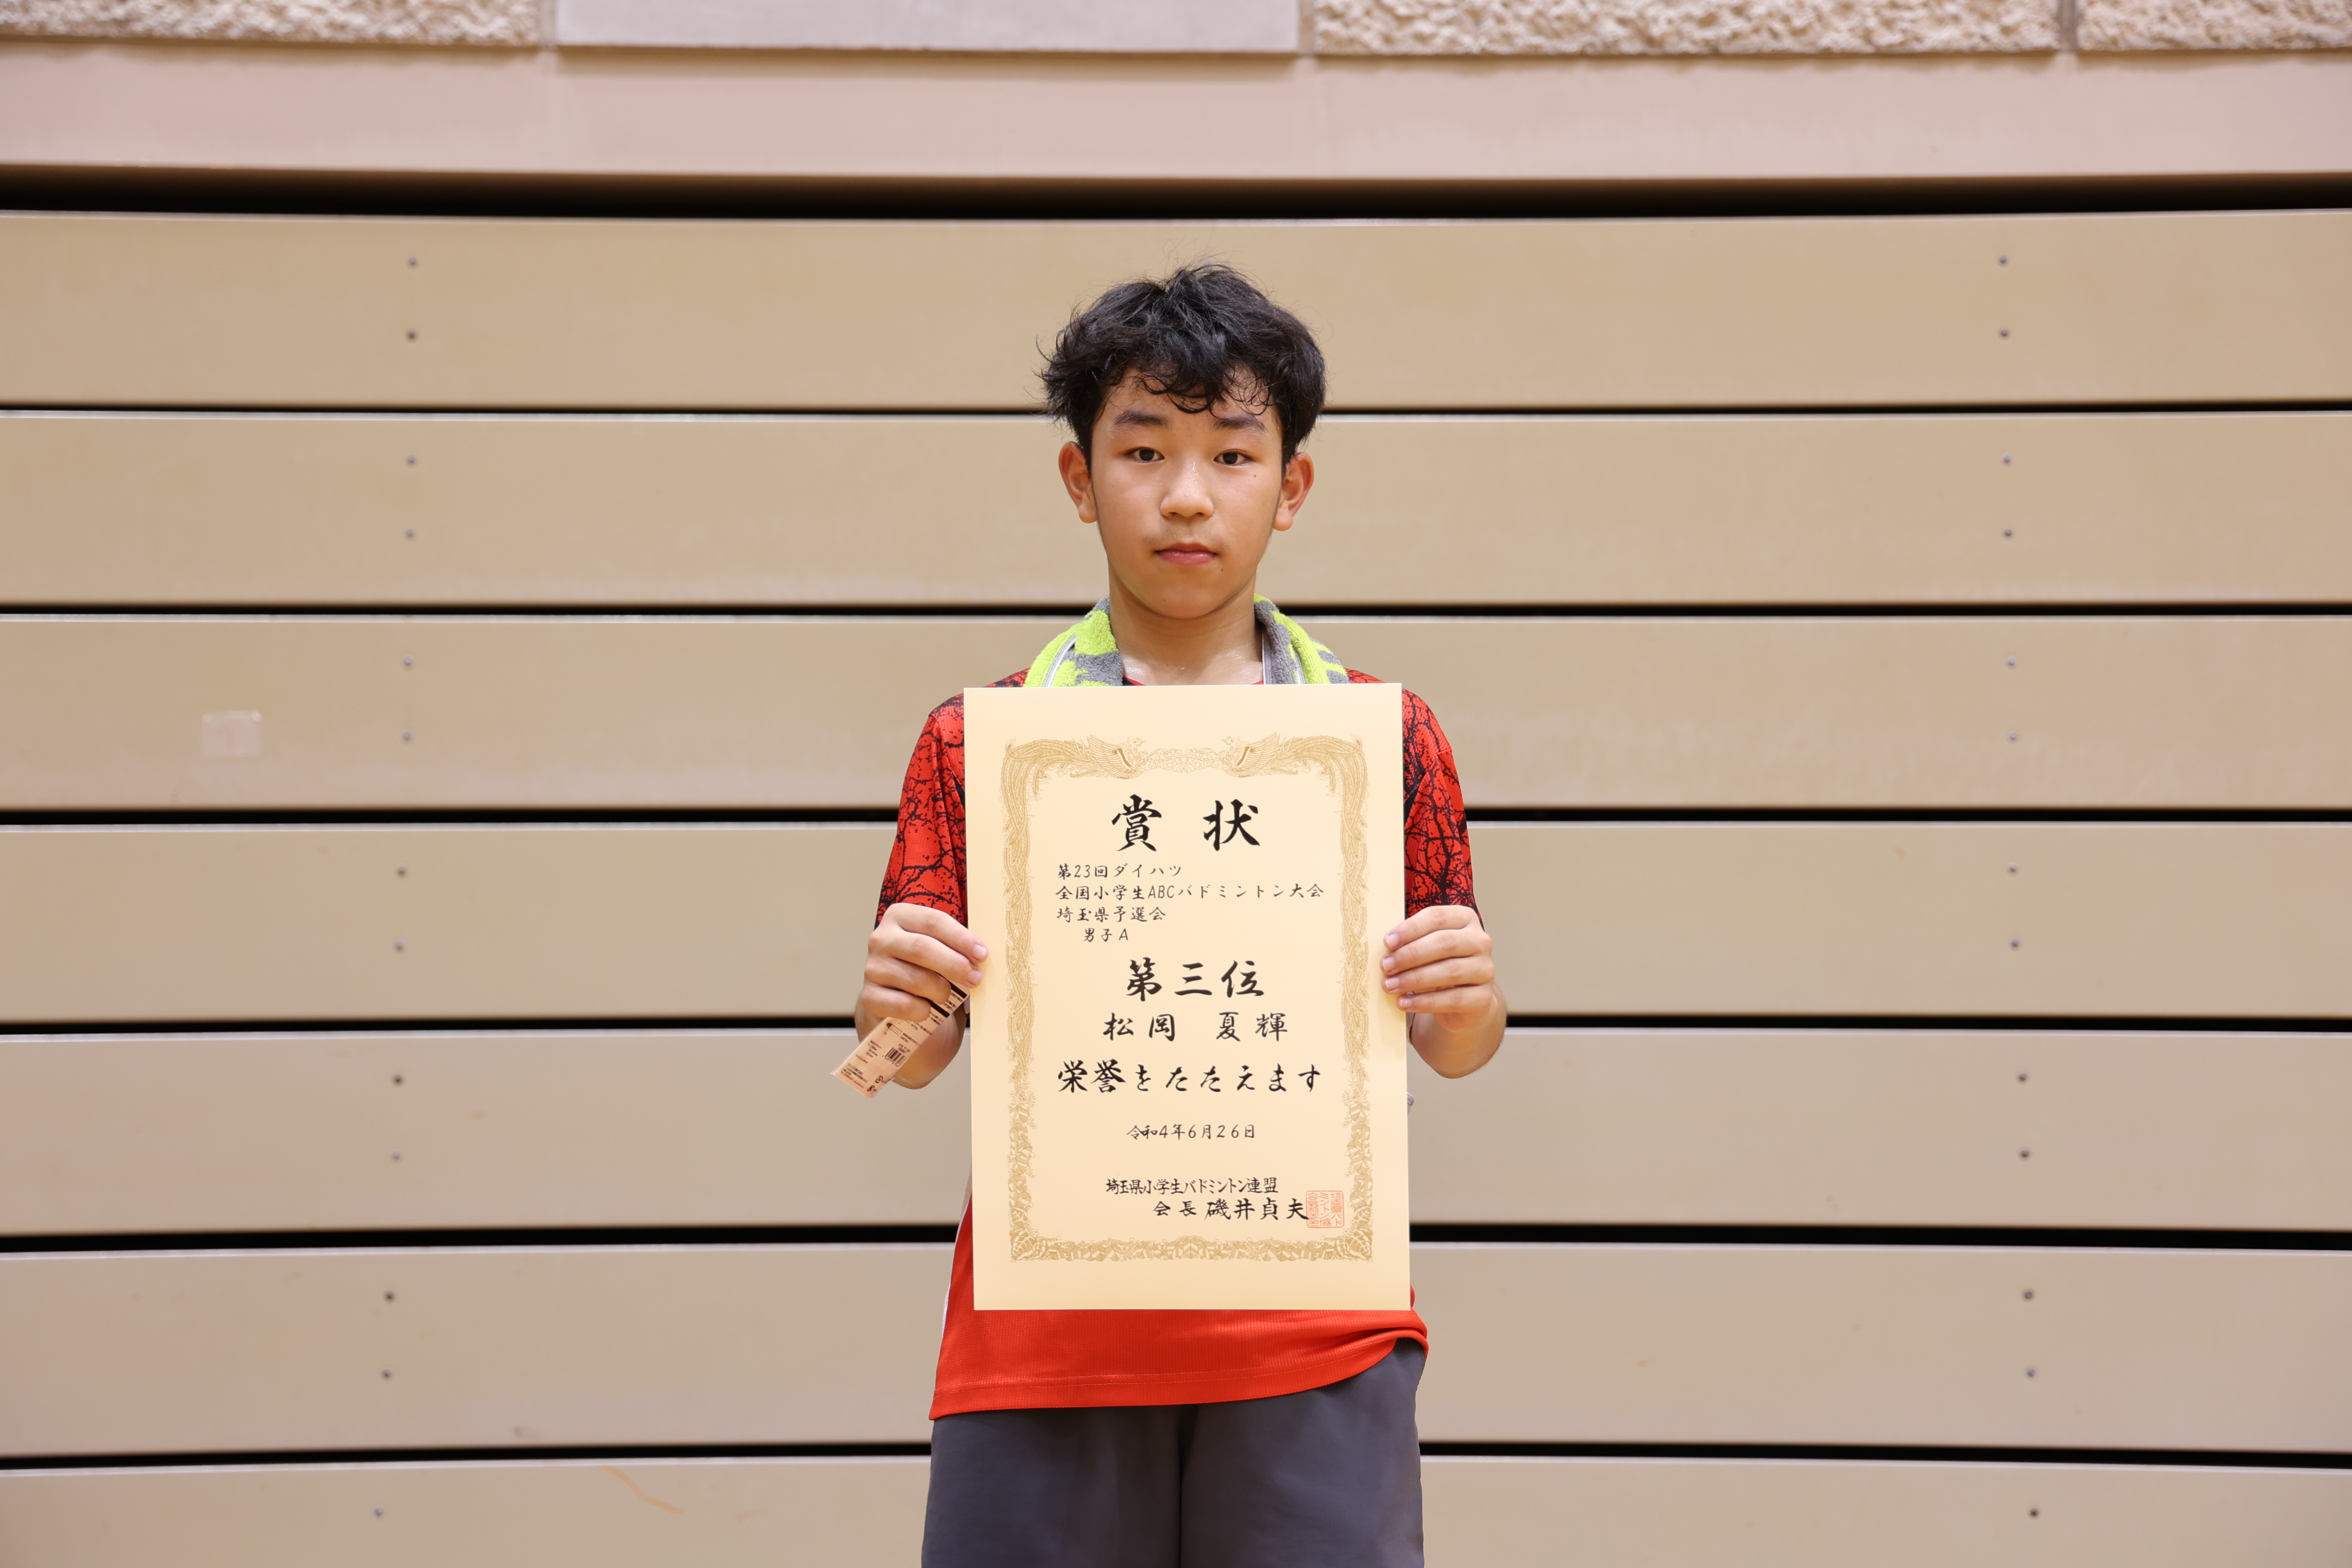 賞状
第23回ダイハツ
全国小学生ABCバドミントン大会
埼玉県予選会
男子A
第三位
松岡 夏輝
栄誉をたたえます
令和4年6月26日
埼玉県小学生バドミントン連盟
会長 磯井貞夫